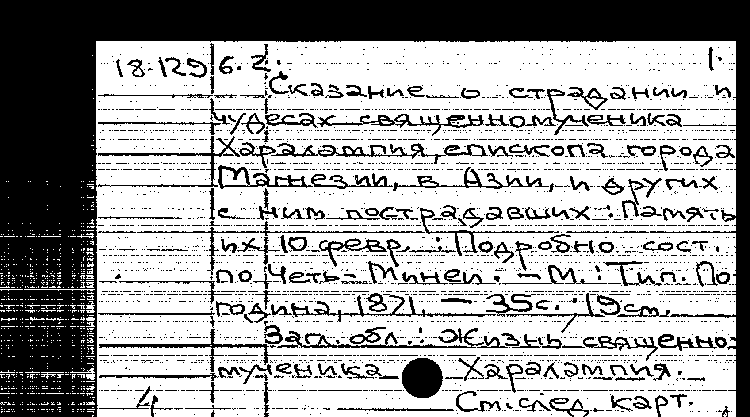 18-129 6.2. 1.
Сказание о страдании и
чудесах священномученика
Харалампия, епископа города
Магнезии, в Азии, и других
с ним пострадавших : Память
их 10 февр. : Подробно сост.
по Четь-Минеи. – М. : Тип. По-
година, 1871. – 35с. ; 19см.
Загл. обл. : Жизнь священно-
мученика Харалампия.
4 См. след. карт.